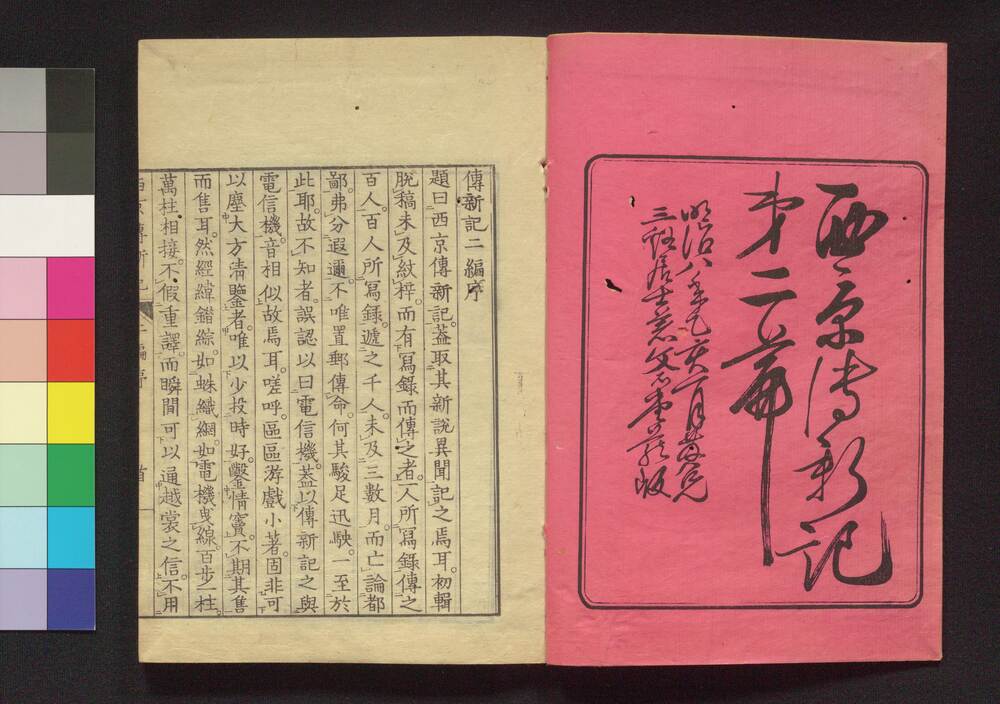 西京傳新記
第二篇
明治八年乙亥一月發兌
三谿居士著 文石堂藏版
傳新記二編序
題曰西京傳新記。蓋取其新説異聞記之焉耳。初輯
脱稿未及紋梓。而有寫錄而傳之者。一人所寫錄傳之
百人。百人所寫錄。遞之千人。未及三數月。而亡論都
鄙弗分遐邇。不唯置郵傳命。何其駿足迅駛。一至於
此耶。故不知者。誤認以曰電信機。蓋以傳新記之與
電信機。音相似故焉耳。嗟呼。區區游戲小著。固非可
以塵大方淸鑒者。唯以少投時好。鑿情竇。不期其售
而售耳。然經緯錯綜。如蛛織網。如電機曳線。百步一柱。
萬柱相接。不假重譯。而瞬間可以通越裳之信。不用